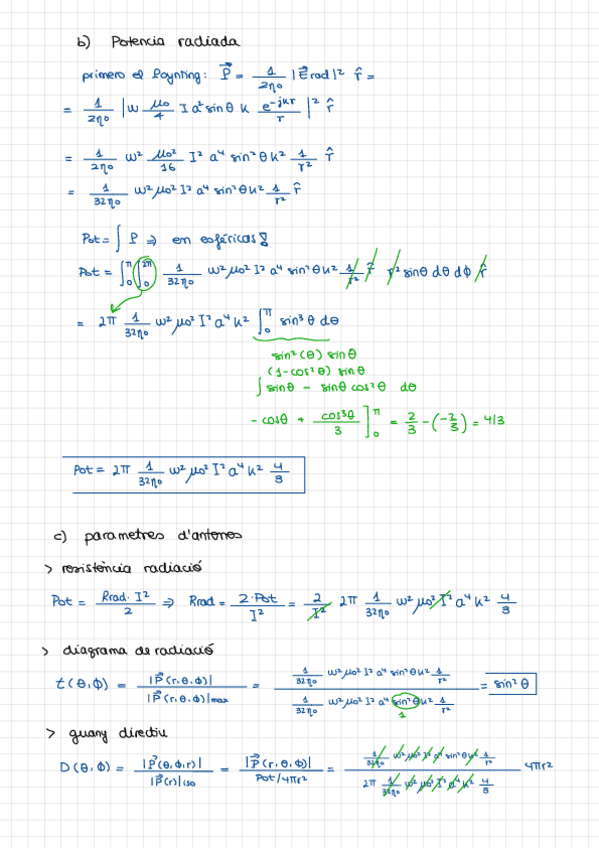 b) Potencia radiada
primero el Poynting: P⃗ = 1/2η₀ |E⃗rad|² r̂ =
= 1/2η₀ |w μ₀/4 I a² sinθ k e^-jkr/r|² r̂
= 1/2η₀ w² μ₀²/16 I² a⁴ sin²θ k² 1/r² r̂
= 1/32η₀ w² μ₀² I² a⁴ sin²θ k² 1/r² r̂
Pot = ∫ P ⇒ en esféricas!
Pot = ∫₀^π ∫₀^2π 1/32η₀ w² μ₀² I² a⁴ sin²θ k² 1/r² r̂ r² sinθ dθ dϕ r̂
= 2π 1/32η₀ w² μ₀² I² a⁴ k² ∫₀^π sin³θ dθ
sin²(θ) sinθ
(1-cos²θ) sinθ
∫ sinθ - sinθ cos²θ dθ
- cosθ + cos³θ/3 ]₀^π = 2/3 - (-2/3) = 4/3
Pot = 2π 1/32η₀ w² μ₀² I² a⁴ k² 4/3
c) parametres d'antenes
> resistència radiació
Pot = Rrad · I²/2 ⇒ Rrad = 2·Pot/I² = 2/I² 2π 1/32η₀ w² μ₀² I² a⁴ k² 4/3
> diagrama de radiació
t(θ,ϕ) = |P⃗(r,θ,ϕ)|/|P⃗(r,θ,ϕ)|max = 1/32η₀ w² μ₀² I² a⁴ sin²θ k² 1/r² / 1/32η₀ w² μ₀² I² a⁴ sin²θ k² 1/r² = sin²θ
1
> guany directiu
D(θ,ϕ) = |P⃗(θ,ϕ,r)|/|P⃗(r)|iso = |P⃗(r,θ,ϕ)|/Pot/4πr² = 1/32η₀ w² μ₀² I² a⁴ sin²θ k² 1/r² / 2π 1/32η₀ w² μ₀² I² a⁴ k² 4/3 4πr²